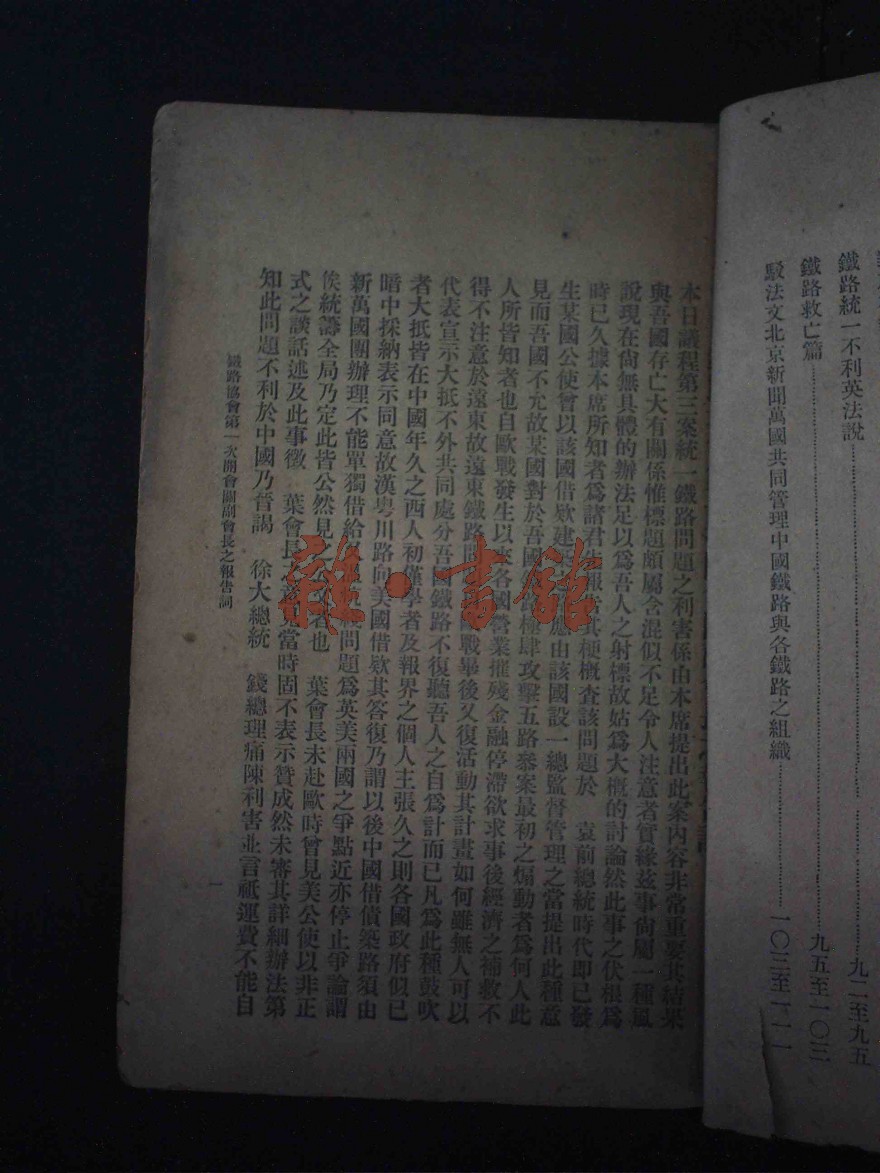 鐵路統一不利英法說……九二至九五
鐵路救亡篇……九五至一〇三
駁法文北京新聞萬國共同管理中國鐵路與各鐵路之組織……一〇三至一一一
本日議程第三案統一鐵路問題之利害係由本席提出此案內容非常重要其結果
與吾國存亡大有關係惟標題頗屬含混似不足令人注意者實緣茲事尙屬一種風
說現在尙無具體的辦法足以爲吾人之射標故姑爲大槪的討論然此事之伏根爲
時已久據本席所知者爲諸君先報告其梗槪查該問題於 袁前總統時代即已發
生某國公使曾以該國借欵建 應由該國設一總監督管理之當提出此種意
見而吾國不允故某國對於吾國 路極肆攻擊五路叅案最初之煽動者爲何人此
人所皆知者也自歐戰發生以來各國營業摧殘金融停滯欲求事後經濟之補救不
得不注意於遠東故遠東鐵路問 戰畢後又復活動其計畫如何雖無人可以
代表宣示大抵不外共同處分吾國鐵路不復聽吾人之自爲計而已凡爲此種鼓吹
者大抵皆在中國年久之西人初僅學者及報界之個人主張久之則各國政府似已
暗中採納表示同意故漢粤川路向美國借欵其答復乃謂以後中國借債築路須由
新萬國團辦理不能單獨借給又 問題爲英美兩國之爭點近亦停止爭論謂
俟統籌全局乃定此皆公然見之 者也 葉會長未赴歐時曾見美公使以非正
式之談話述及此事徵 葉會長意見當時固不表示贊成然未審其詳細辦法第
知此問題不利於中國乃晉謁 徐大總統 錢總理痛陳利害並言祗運費不能自
鐵路協會第一次開會關副會長之報告詞
一
雜·書館